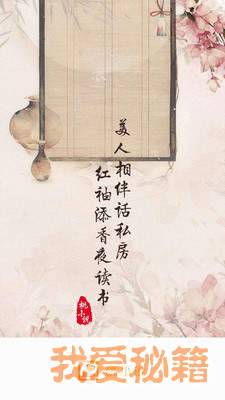 美人相伴话私房
红袖添香夜读书
桃小说
我爱秘籍